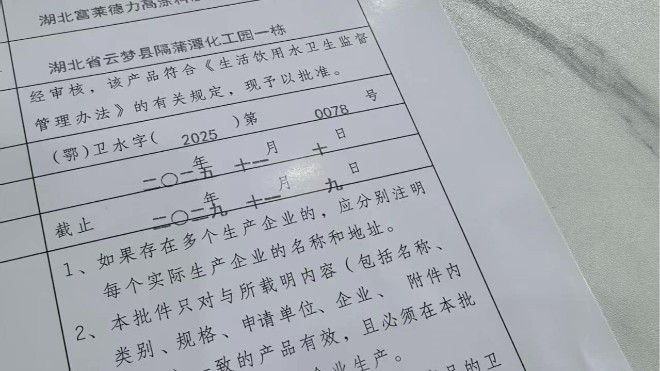 湖北富莱德力高涂料
湖北省云梦县隔蒲潭化工园一栋
经审核，该产品符合《生活饮用水卫生监督
管理办法》的有关规定，现予以批准。
(鄂)卫水字( 2025 )第 0078 号
二〇一五年 十一月 十日
截止 二〇二九年 十一月 九日
1、如果存在多个生产企业的，应分别注明
每个实际生产企业的名称和地址。
2、本批件只对与所载明内容（包括名称、
类别、规格、申请单位、企业、附件内
一致的产品有效，且必须在本批
企业生产。
品的卫